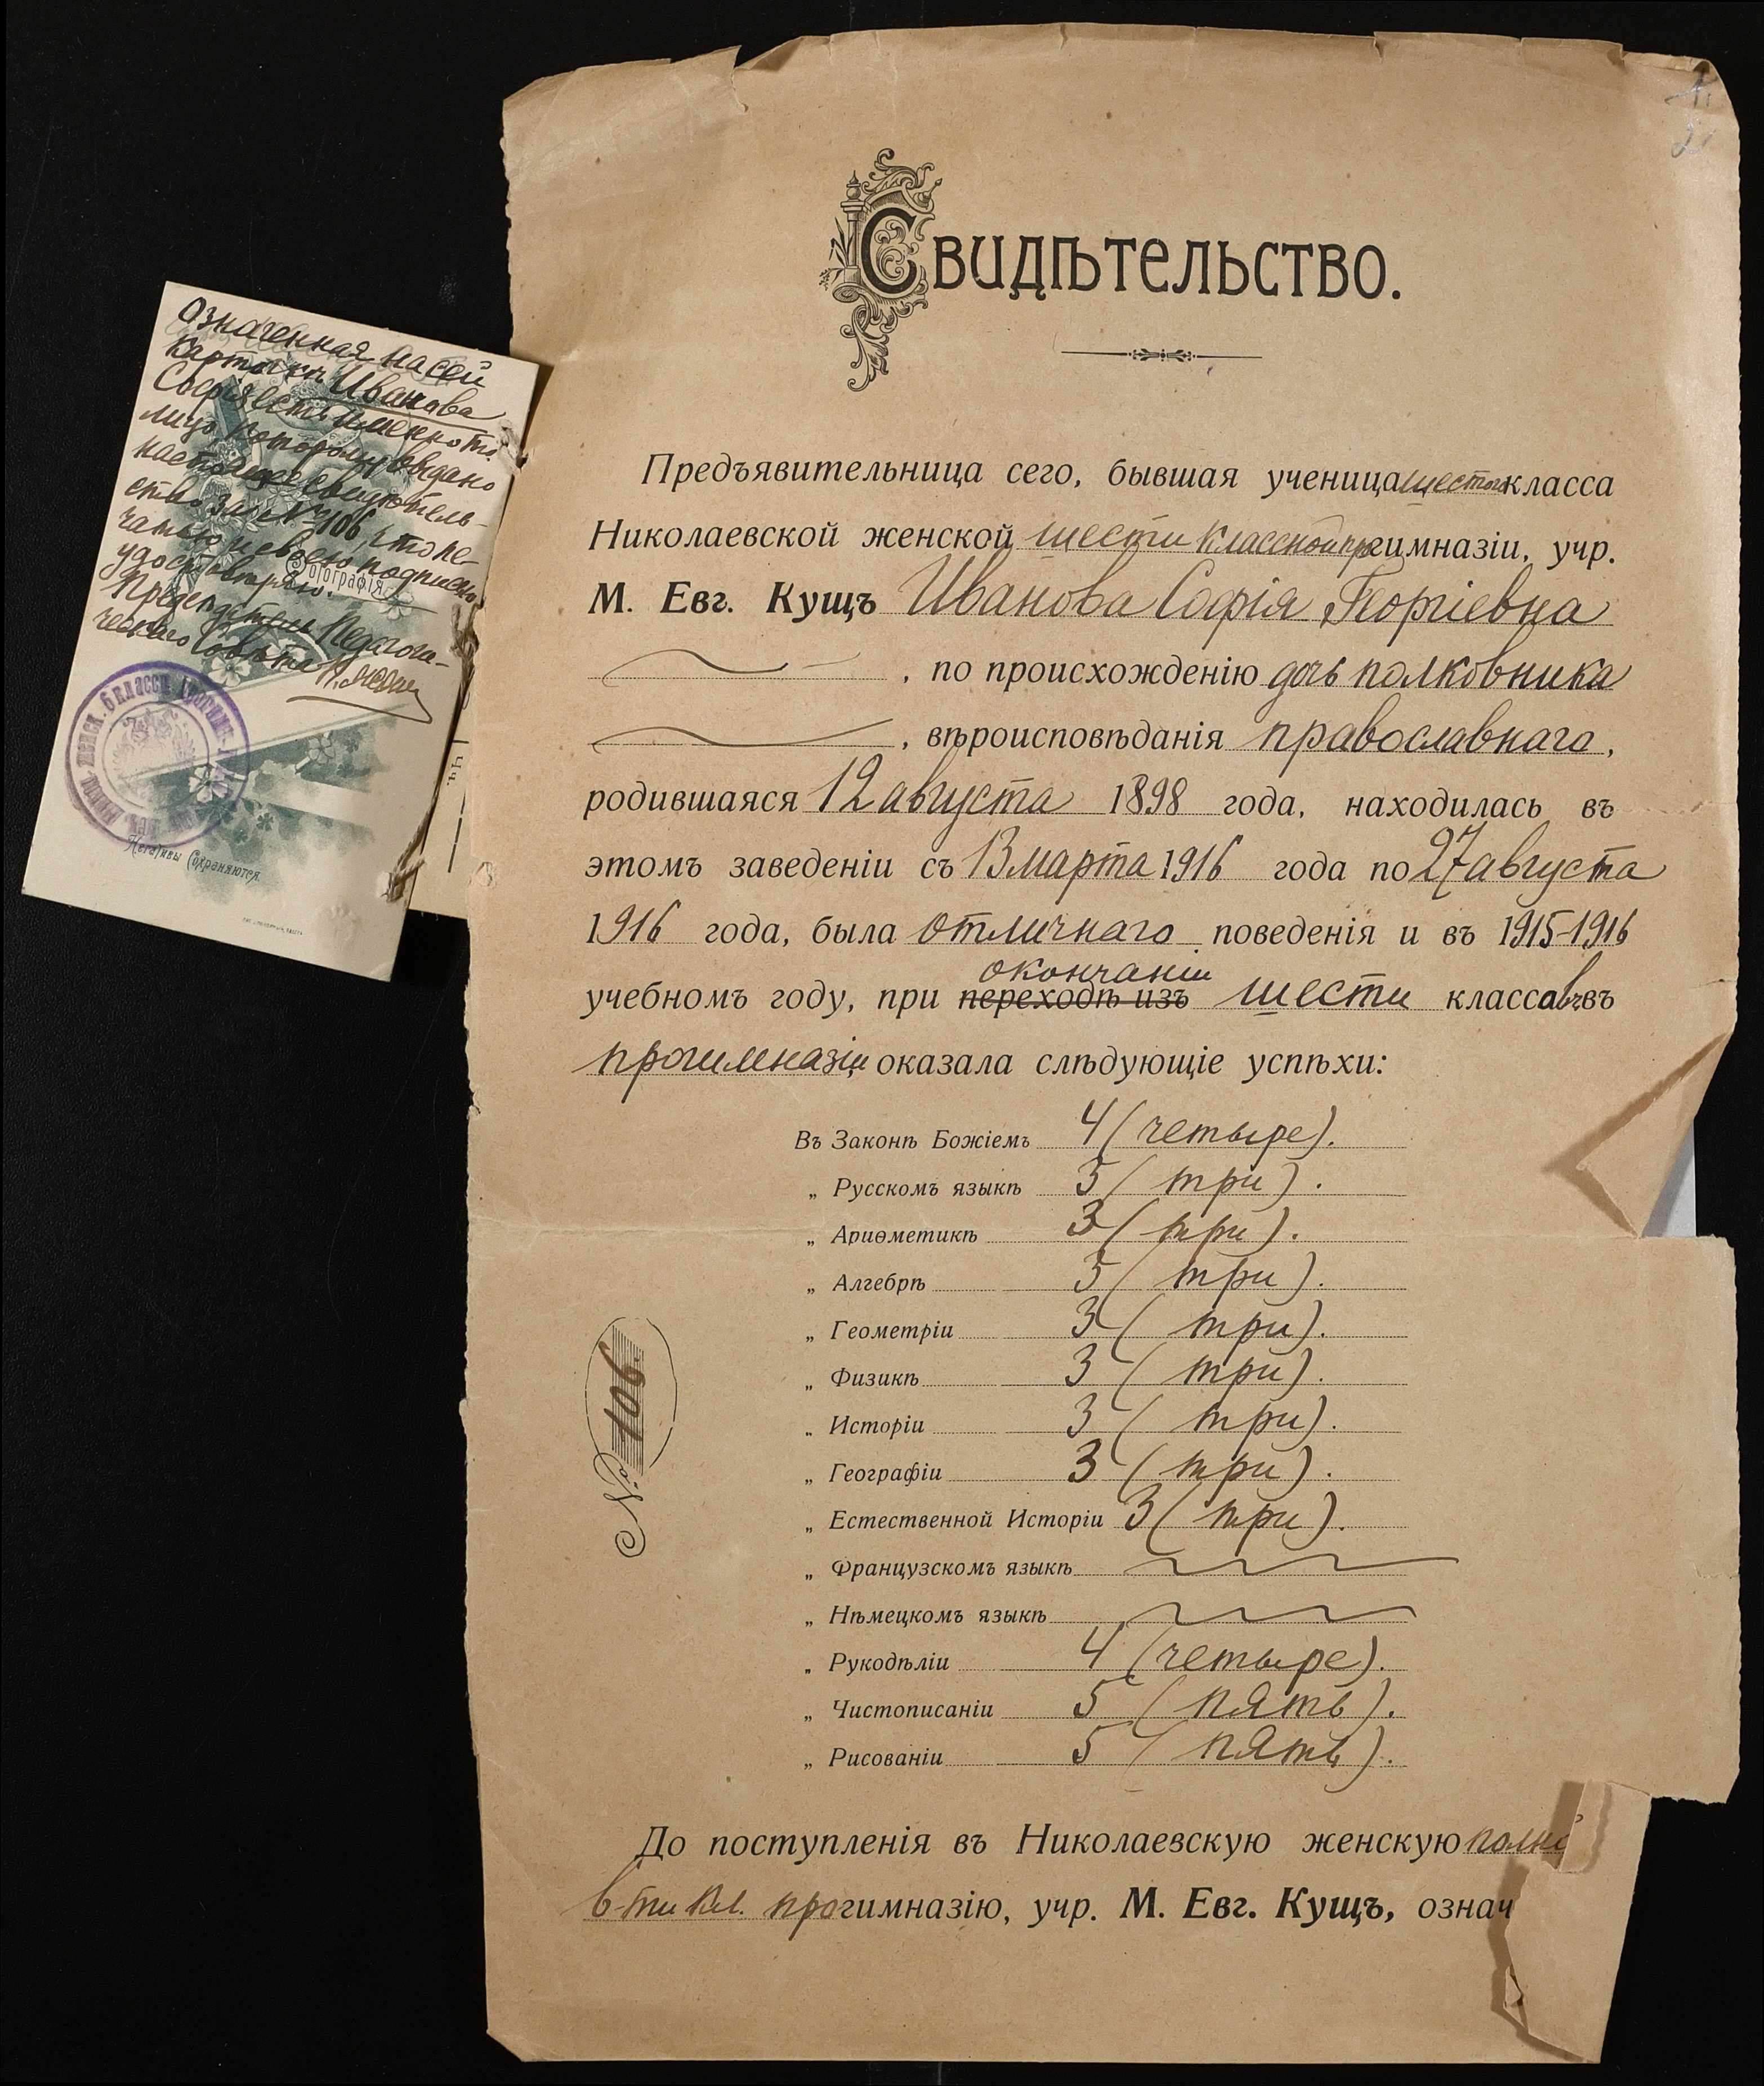 Означенная на сей
карточкѣ Иванова
Софія есть именно то
лицо, которому выдано
настоящее свидѣтель-
ство за № 106, что пе-
чатью и своею подписью
удостовѣряю.
Фотографія
Предсѣдатель Педагоги-
ческаго Совѣта
Негативы сохраняются.
Свидѣтельство.
Предъявительница сего, бывшая ученица шестого класса
Николаевской женской шести классной прогимназіи, учр.
М. Евг. Кущъ Иванова Софія Георгіевна
, по происхожденію дочь полковника
, вѣроисповѣданія православнаго,
родившаяся 12 августа 1898 года, находилась въ
этомъ заведеніи съ 13 марта 1916 года по 27 августа
1916 года, была отличнаго поведенія и въ 1915-1916
окончаніи
учебномъ году, при переходѣ изъ шести классовъ въ
прогимназіи оказала слѣдующіе успѣхи:
Въ Законѣ Божіемъ 4 (четыре).
„ Русскомъ языкѣ 3 (три).
„ Ариѳметикѣ 3 (три).
„ Алгебрѣ 3 (три).
„ Геометріи 3 (три).
„ Физикѣ 3 (три).
„ Исторіи 3 (три).
„ Географіи 3 (три).
„ Естественной Исторіи 3 (три).
„ Французскомъ языкѣ
„ Нѣмецкомъ языкѣ
„ Рукодѣліи 4 (четыре).
„ Чистописаніи 5 (пять).
„ Рисованіи 5 (пять).
№ 106.
До поступленія въ Николаевскую женскую
6-ти кл. прогимназію, учр. М. Евг. Кущъ,означ